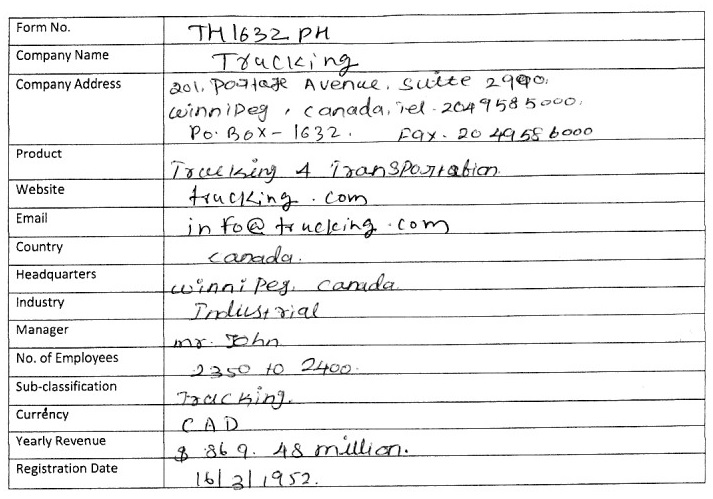 Form No. TH1632 PH
Company Name Trucking
Company Address 201, Portage Avenue, Suite 2990,
Winnipeg, Canada, Tel. 2049585000,
Po. Box - 1632. Fax. 2049586000
Product Trucking & Transportation
Website trucking.com
Email info@trucking.com
Country Canada.
Headquarters Winnipeg, Canada.
Industry Industrial
Manager Mr. John
No. of Employees 2350 to 2400.
Sub-classification Trucking.
Currency CAD
Yearly Revenue $ 869.48 million.
Registration Date 16/3/1952.